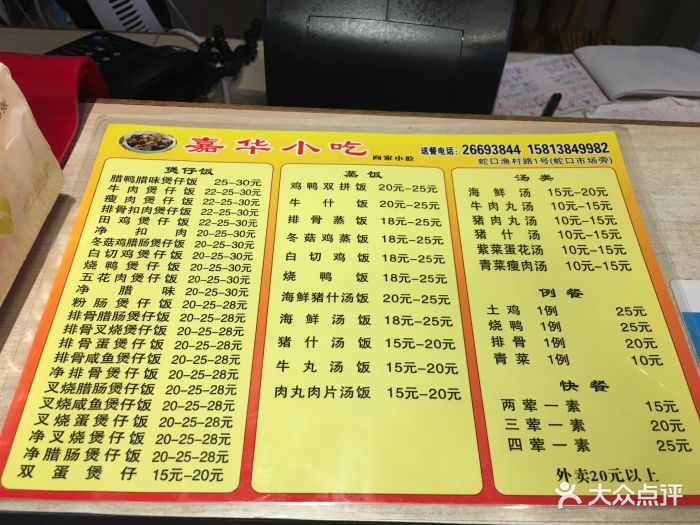 嘉华小吃
自家小吃
送餐电话: 26693844 15813849982
蛇口渔村路1号(蛇口市场旁)
煲仔饭
腊鸭腊味煲仔饭 25-30元
牛肉煲仔饭 22-25-30元
瘦肉煲仔饭 22-25-30元
排骨扣肉煲仔饭 22-25-30元
田鸡煲仔饭 22-25-30元
净扣肉 20-25-30元
冬菇鸡腊肠煲仔饭 20-25-30元
白切鸡煲仔饭 20-25-30元
烧鸭煲仔饭 20-25-30元
五花肉煲仔饭 20-25-30元
净腊味 20-25-30元
粉肠煲仔饭 20-25-28元
排骨腊肠煲仔饭 20-25-28元
排骨叉烧煲仔饭 20-25-28元
排骨蛋煲仔饭 20-25-28元
排骨咸鱼煲仔饭 20-25-28元
净排骨煲仔饭 20-25-28元
叉烧腊肠煲仔饭 20-25-28元
叉烧咸鱼煲仔饭 20-25-28元
叉烧蛋煲仔饭 20-25-28元
净叉烧煲仔饭 20-25-28元
净腊肠煲仔饭 20-25-28元
双蛋煲仔 15元-20元
蒸饭
鸡鸭双拼饭 20元-25元
牛什饭 20元-25元
排骨蒸饭 18元-25元
冬菇鸡蒸饭 18元-25元
白切鸡饭 18元-25元
烧鸭饭 18元-25元
海鲜猪什汤饭 20元-25元
海鲜汤饭 18元-25元
猪什汤饭 15元-20元
牛丸汤饭 15元-20元
肉丸肉片汤饭 15元-20元
汤类
海鲜汤 15元-20元
牛肉丸汤 10元-15元
猪肉丸汤 10元-15元
猪什汤 10元-15元
紫菜蛋花汤 10元-15元
青菜瘦肉汤 10元-15元
例餐
土鸡1例 25元
烧鸭1例 25元
排骨1例 20元
青菜1例 10元
快餐
两荤一素 15元
三荤一素 20元
四荤一素 25元
外卖20元以上
大众点评